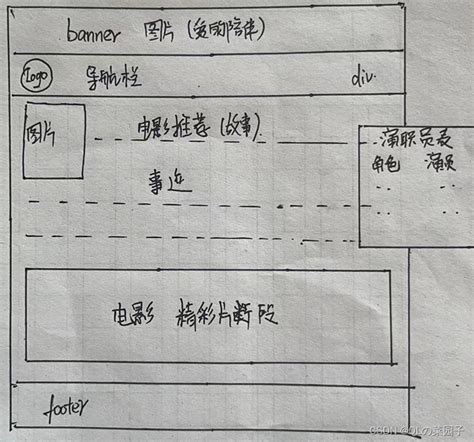 banner 图片 (爱的陪伴)
logo 导航栏 div.
图片 电影推荐 (故事)
演职员表
角色 演员
事迹
.. ..
.. ..
电影 精彩片断段
footer
CSDN @QLの菜园子